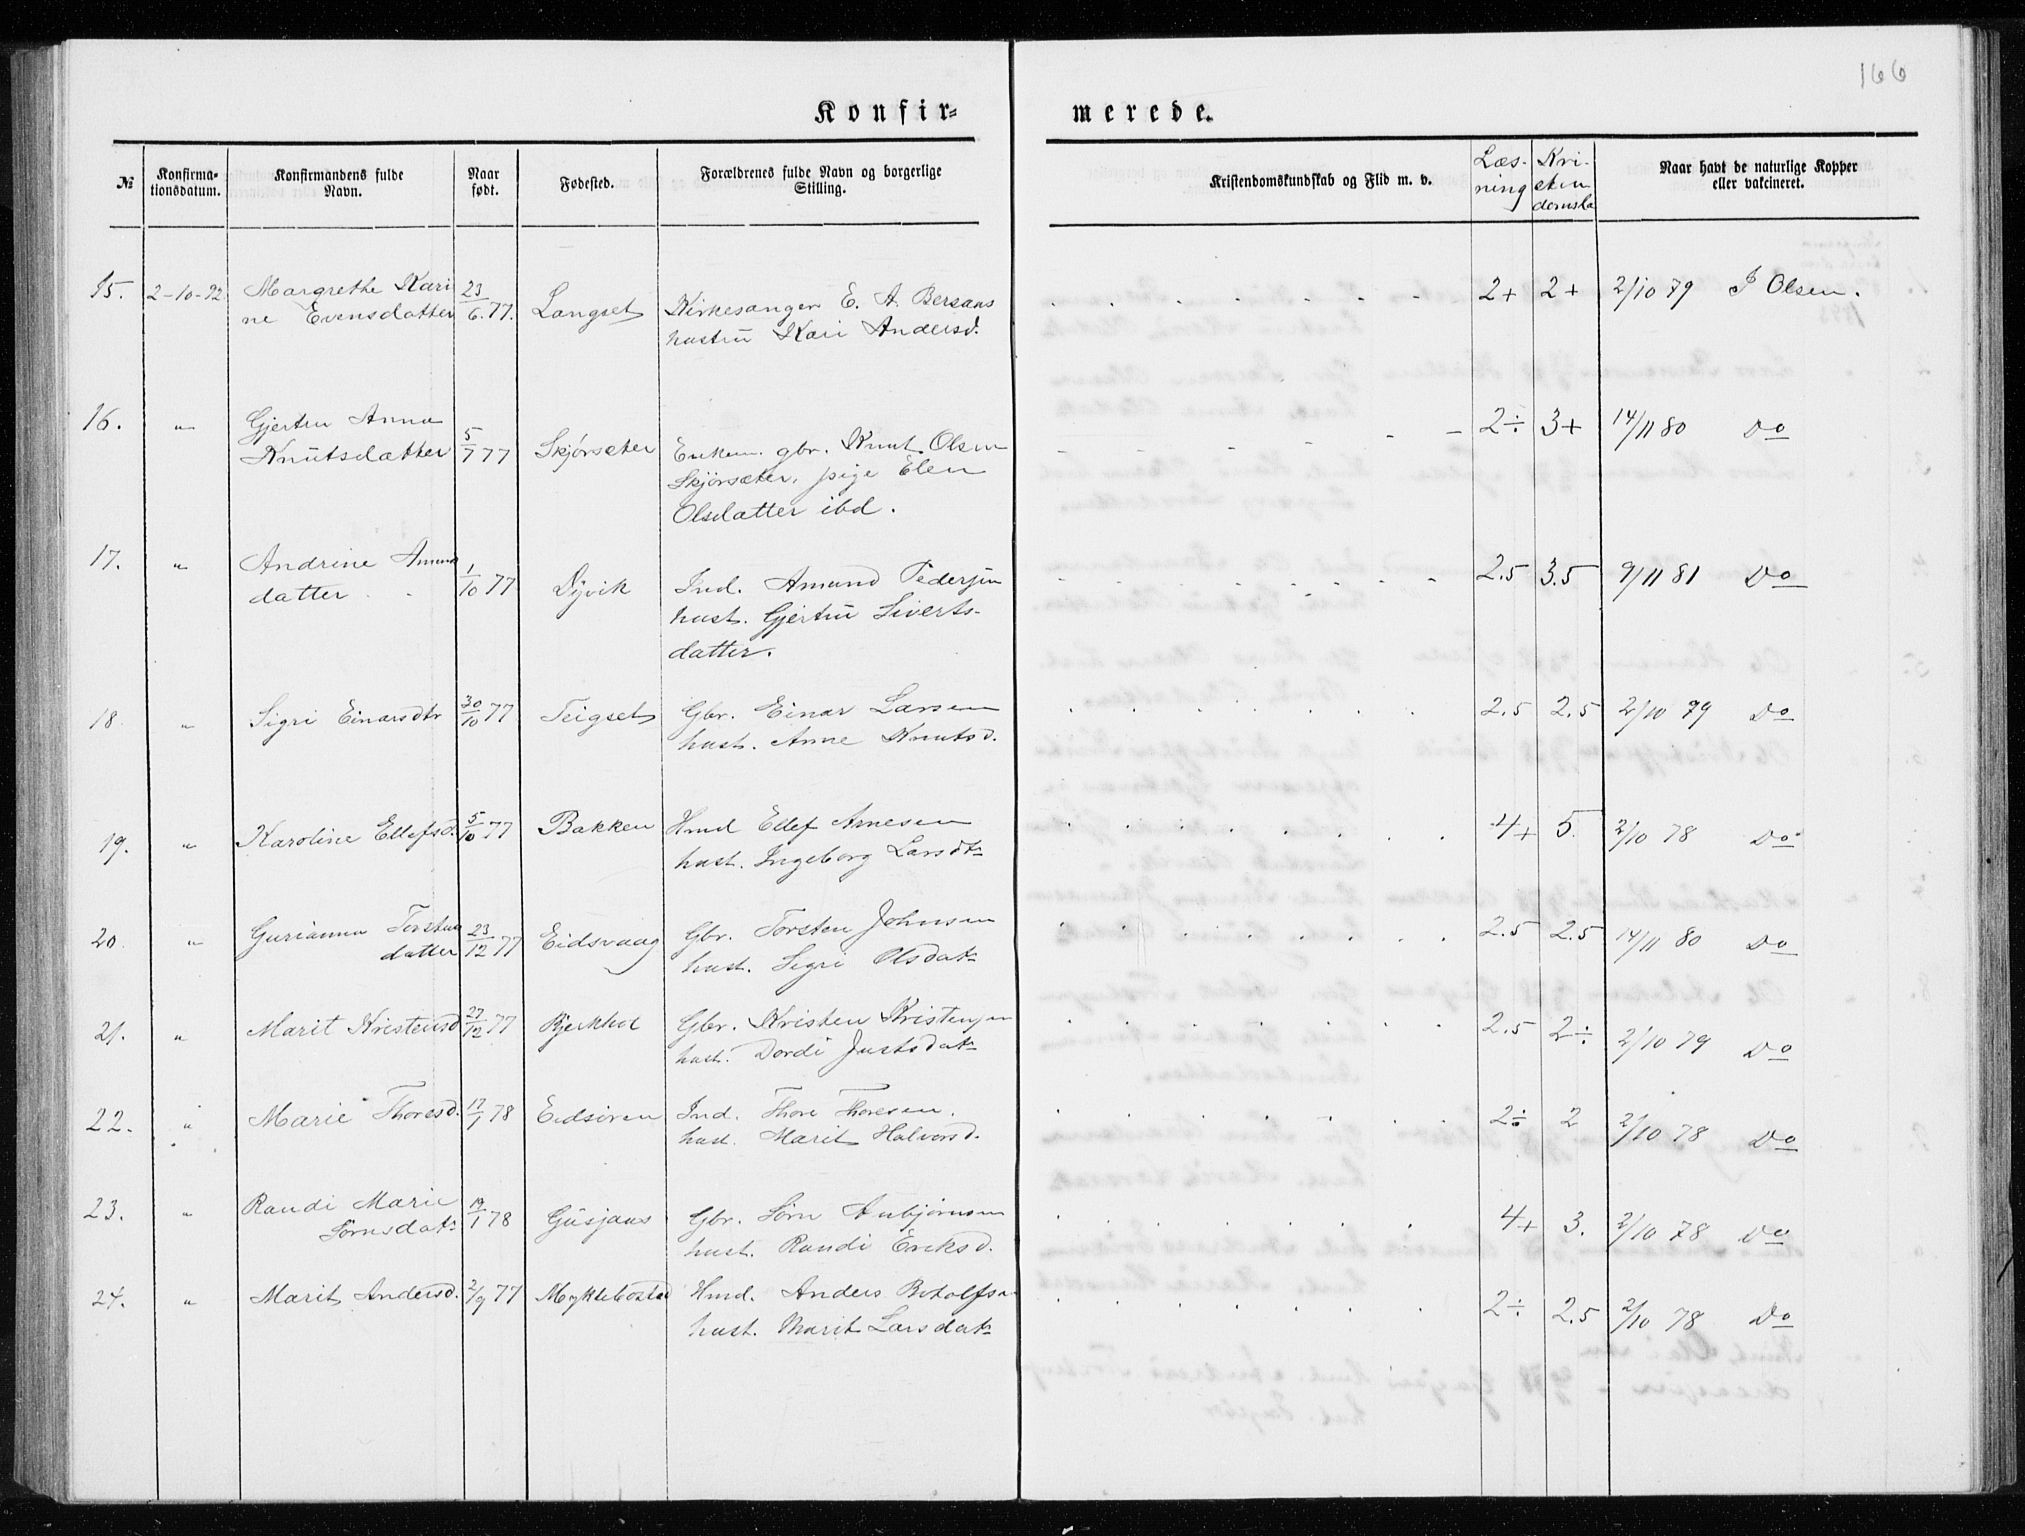 166
Konfir-
merede.
№
Konfirma-
tionsdatum.
Konfirmandens fulde
Navn.
Naar
født.
Fødested.
Forældrenes fulde Navn og borgerlige
Stilling.
Kristendomskundskab og Flid m. v.
Læs-
ning
Kri-
sten
domsk
Naar havt de naturlige Kopper
eller vakcineret.
15. 2-10-92 Margrethe Kari 23 2+ 2+ 2/10 79 J Olsen.
ne Evensdatter 6.77. Langset Kirkesanger E. A. Bersaas
hustru Kari Andersd.
16. " Gjertru Anna 2÷ 3+ 14/11 80 Do
Knutsdatter 5/7 77 Skjørsæter Enkem. gbr. Knut Olsen
Skjörsæter, pige Elen
Olsdatter ibd.
17. " Andrine Amund 2.5 3.5 9/11 81 Do
datter 1/10 77 Dyvik Ind. Amund Pedersen
hust. Gjertru Siverts-
datter.
18. " Sigri Einarsdtr 30/10 77 Teigset Gbr. Einar Larsen 2.5 2.5 2/10 79 Do
hust. Anne Knutsd.
19. " Karoline Ellefsd. 5/10 77 Bakken Hmd Ellef Arnesen 4+ 5. 2/10 78 Do
hust. Ingeborg Larsdtr
20. " Gurianna Torsten 23/12 77 Eidsvaag Gbr. Torsten Johnsen 2.5 2.5 14/11 80 Do
datter hust. Sigri Olsdatr
21. " Marit Kristensd 27/12 77 Bjerkhol Gbr. Kristen Kristensen 2.5 2÷ 2/10 79 Do
hust. Dordi Justsdatr
22. " Marie Thoresd. 17/1 78 Eidsören Ind. Thore Thoresen. 2÷ 2 2/10 78 Do
hust. Marit Halvorsd.
23. " Randi Marie 19/1 78 Gusjaas Gbr. Sörn Anbjörnsen 4+ 3. 2/10 78 Do
Sörnsdatr hust. Randi Eriksd.
24. " Marit Andersd. 2/9 77 Myklebostad Hmd. Anders Botolfsn 2÷ 2.5 2/10 78 Do
hust. Marit Larsdatr